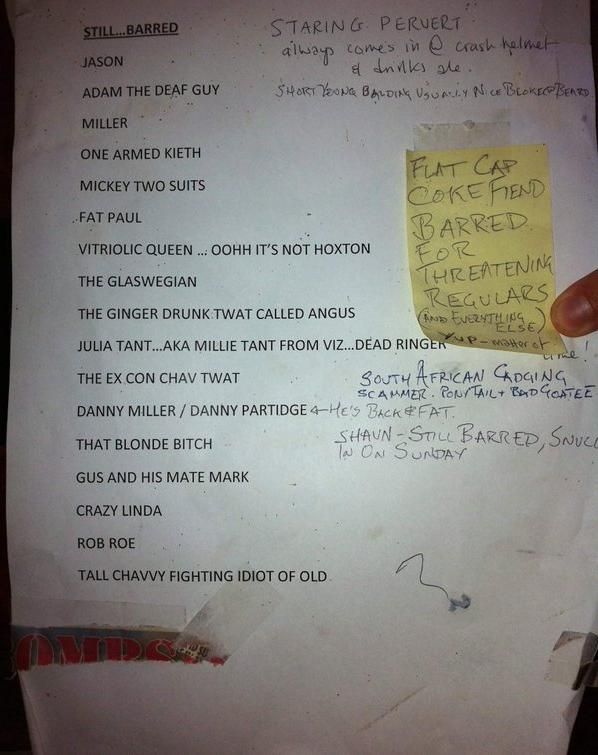 STILL...BARRED
STARING PERVERT
always comes in @ crash helmet
& drinks ale.
JASON
ADAM THE DEAF GUY
SHORT YOUNG BALDING USUALLY NICE BLOKE @ BEARD
MILLER
ONE ARMED KIETH
MICKEY TWO SUITS
FAT PAUL
VITRIOLIC QUEEN ... OOHH IT'S NOT HOXTON
THE GLASWEGIAN
THE GINGER DRUNK TWAT CALLED ANGUS
JULIA TANT...AKA MILLIE TANT FROM VIZ...DEAD RINGER
FLAT CAP
COKE FIEND
BARRED
FOR
THREATENING
REGULARS
(AND EVERYTHING
ELSE)
YUP - matter of
time!
THE EX CON CHAV TWAT
SOUTH AFRICAN CADGING
SCAMMER. PONYTAIL + BAD GOATEE
DANNY MILLER / DANNY PARTIDGE ← HE'S BACK & FAT.
THAT BLONDE BITCH
SHAUN - STILL BARRED,
IN ON SUNDAY
GUS AND HIS MATE MARK
CRAZY LINDA
ROB ROE
TALL CHAVVY FIGHTING IDIOT OF OLD